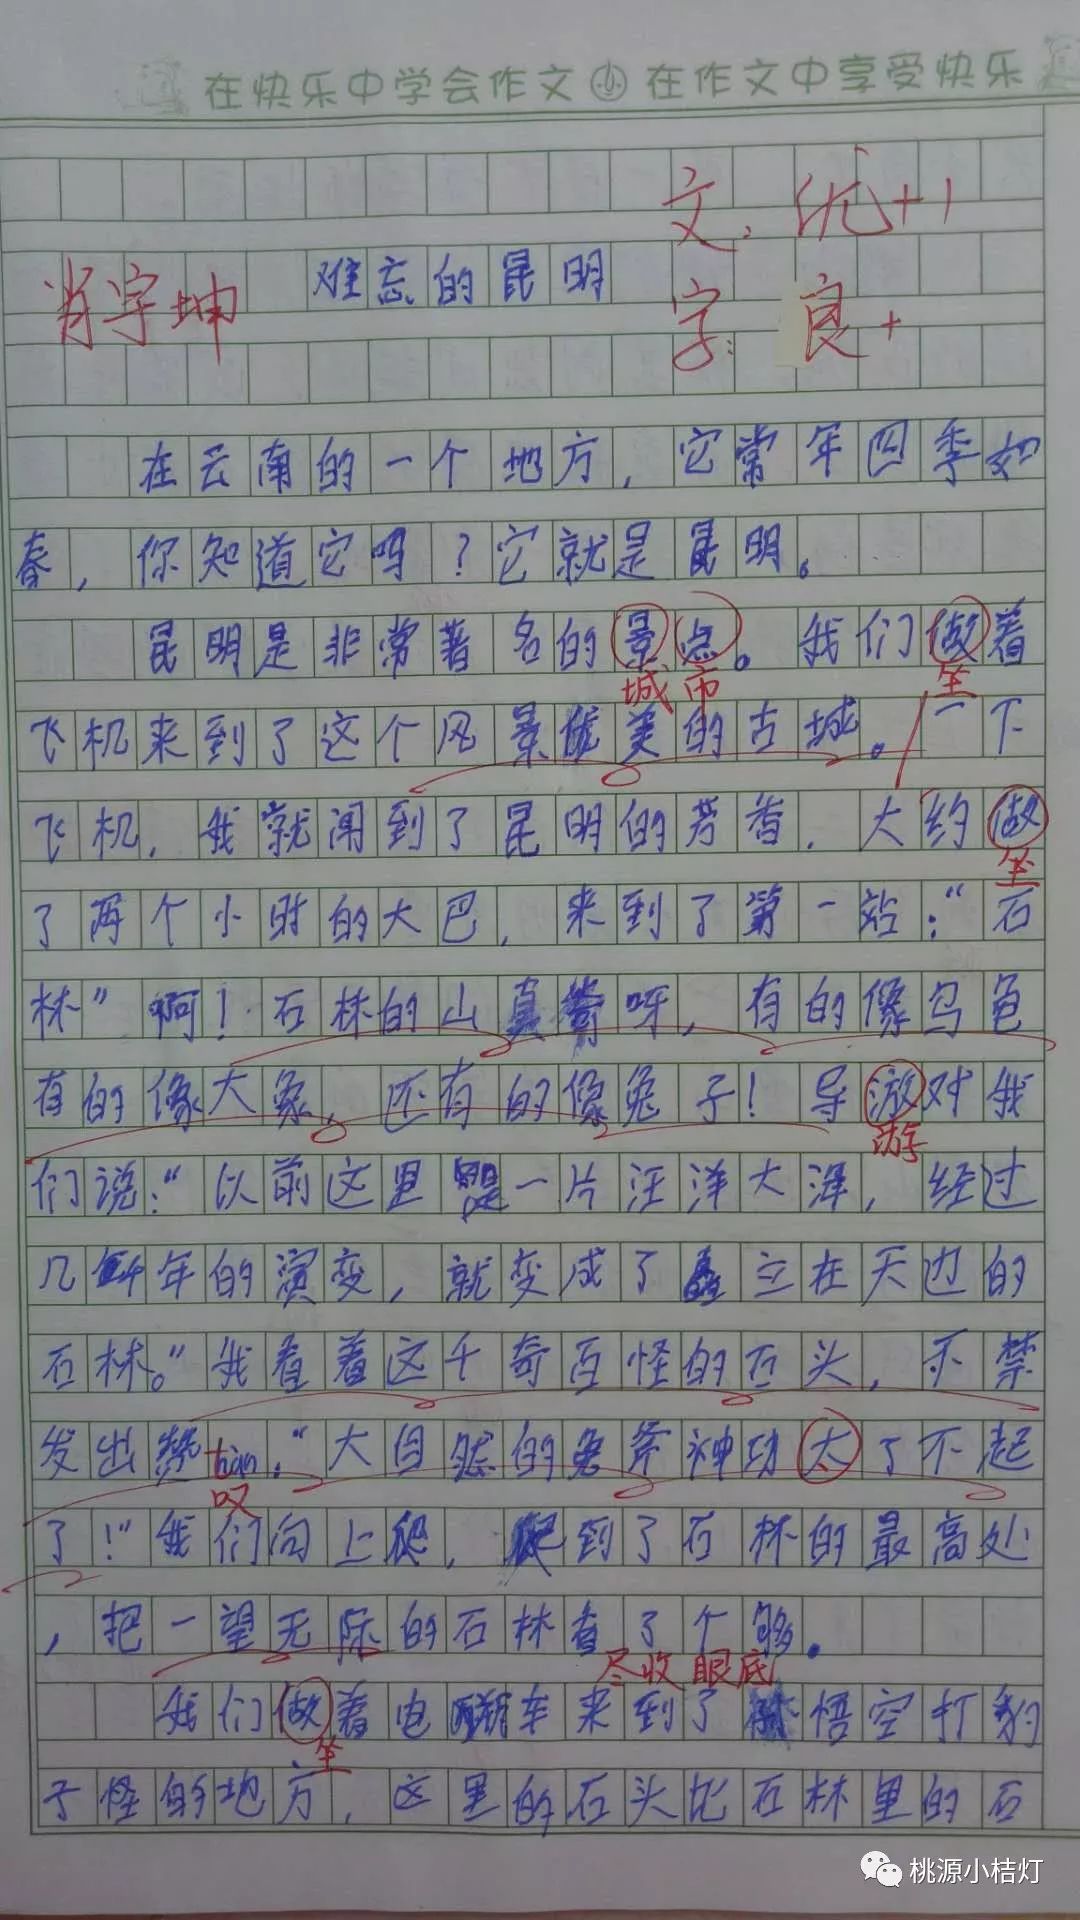 在快乐中学会作文 小 在作文中享受快乐
文：优+1
肖宇坤 难忘的昆明
字：良+
在云南的一个地方，它常年四季如
春，你知道它吗？它就是昆明。
昆明是非常著名的景点。我们做着
城市 坐
飞机来到了这个风景优美的古城。一下
飞机，我就闻到了昆明的芳香。大约做
坐
了两个小时的大巴，来到了第一站：“石
林”啊！石林的山真奇呀，有的像乌龟
有的像大象，还有的像兔子！导游对我
游
们说：“以前这里是一片汪洋大海，经过
几千年的演变，就变成了矗立在天边的
石林。”我看着这千奇百怪的石头，不禁
发出赞tàn：“大自然的鬼斧神功太了不起
叹
了！”我们向上爬，爬到了石林的最高处
，把一望无际的石林看了个够。
尽收眼底
我们做着电瓶车来到了悟空打豹
坐
子怪的地方，这里的石头比石林里的石
桃源小桔灯